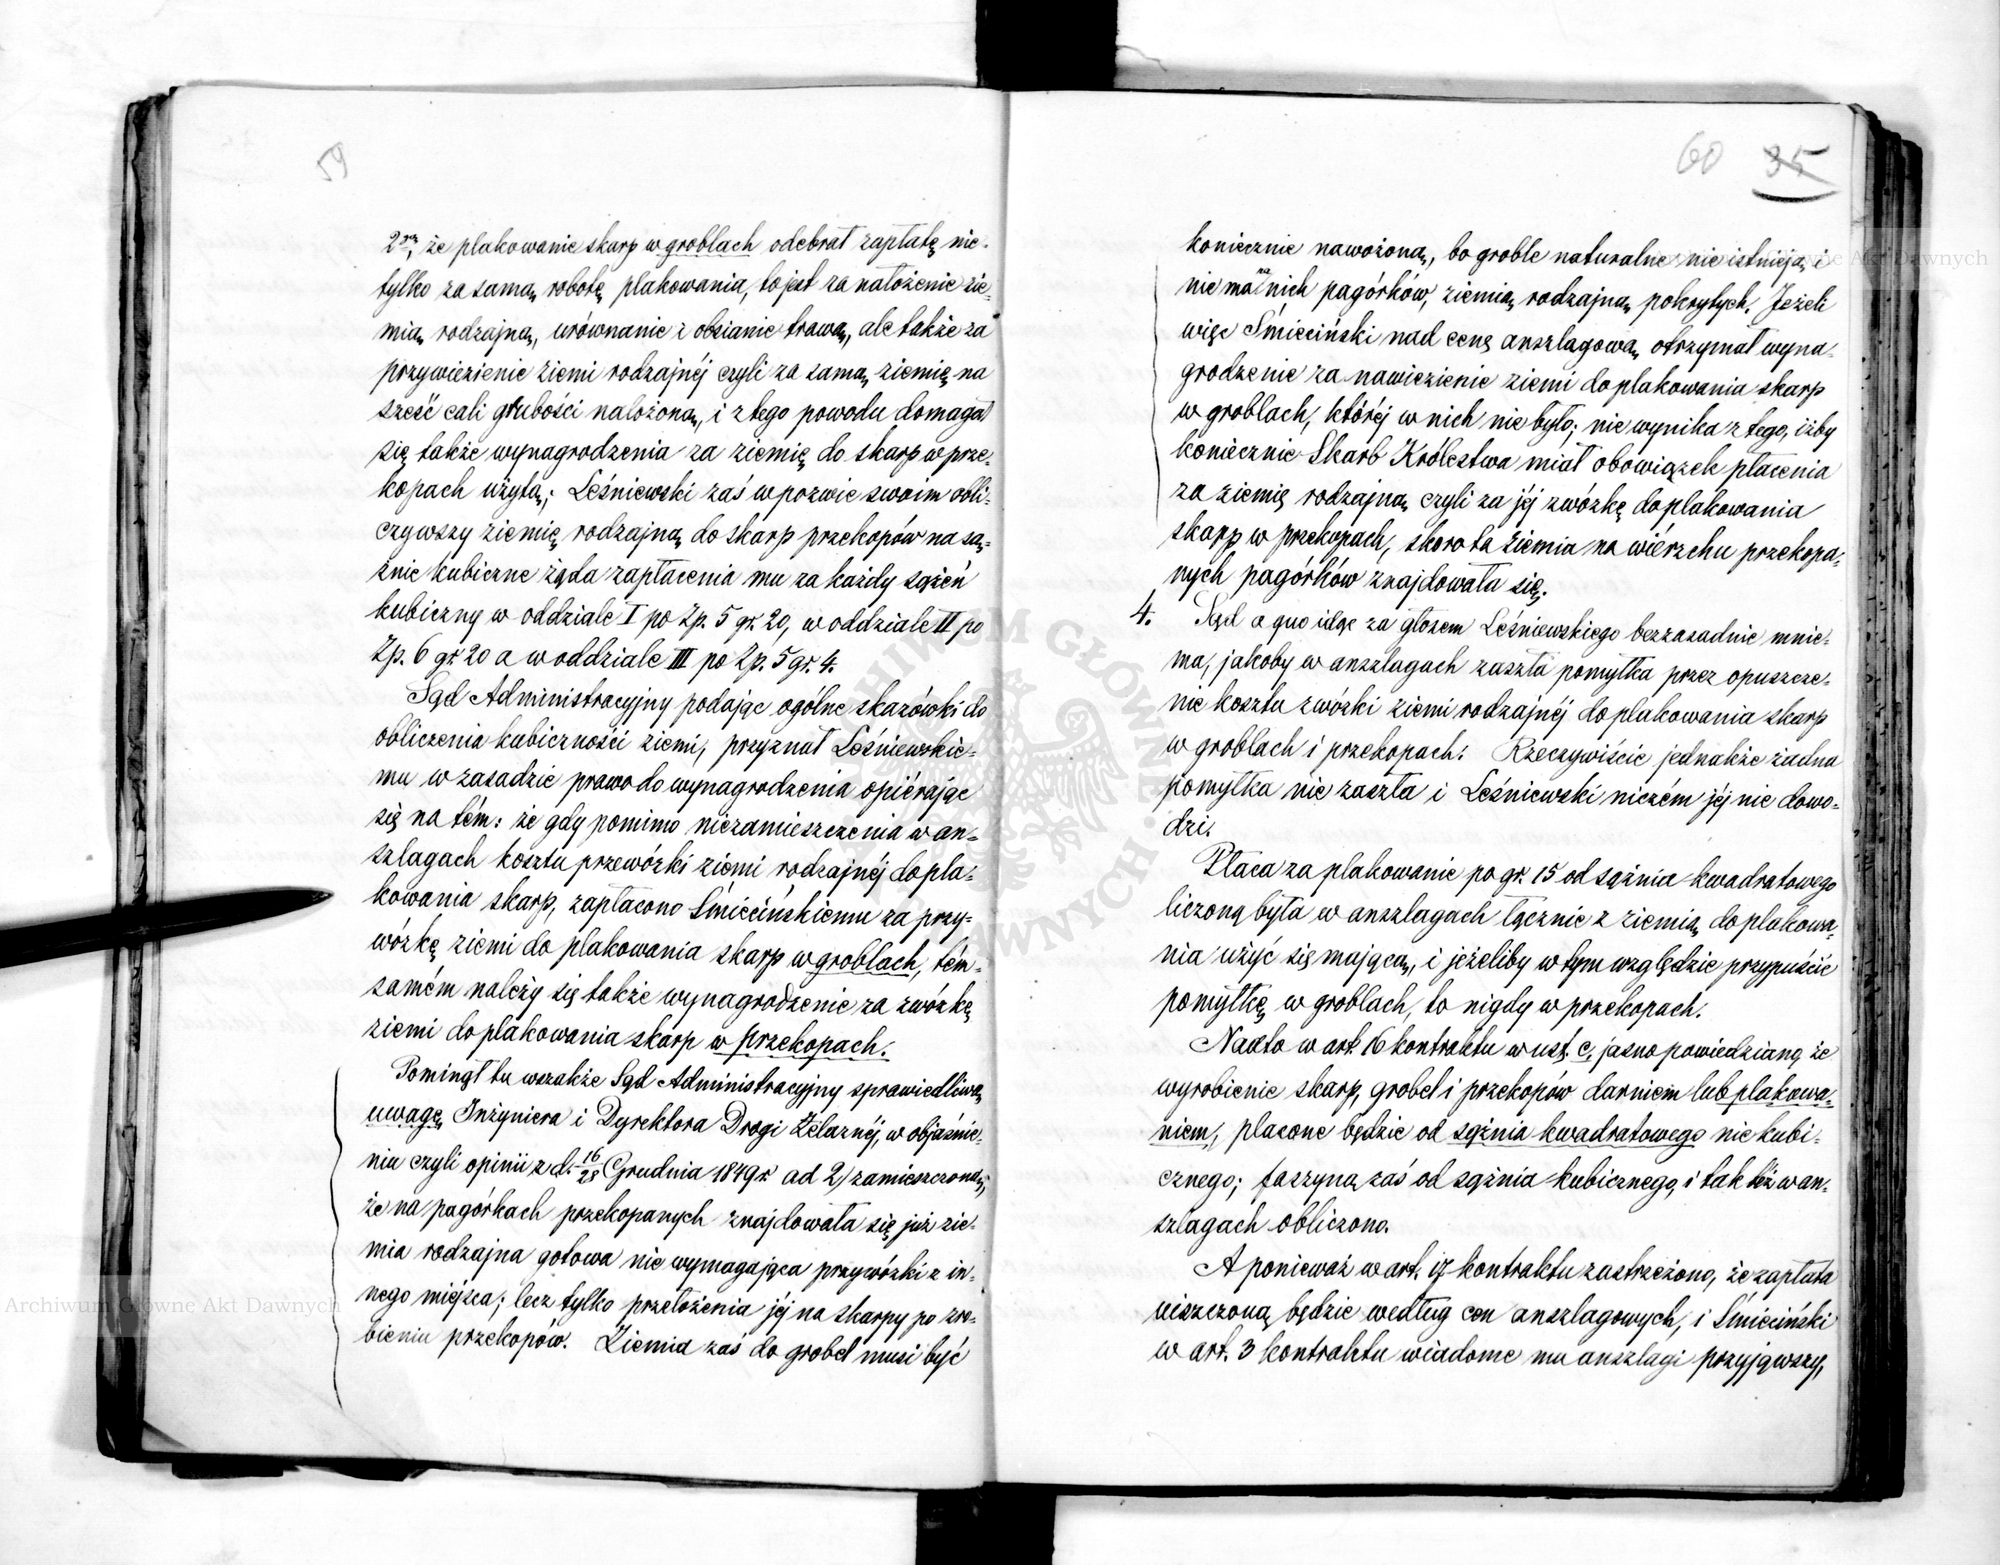 59
2re, że plakowanie skarp w groblach odebrał zapłatę nie-
tylko za samą robotę plakowania, to jest za nałożenie zie-
mią rodzajną, urównanie i obsianie trawą, ale także za
przywiezienie ziemi rodzajnéj czyli za samą ziemię na
sześć cali grubości nałożoną, i z tego powodu domagał
się także wynagrodzenia za ziemię do skarp w prze-
kopach użytą; Leśniewski zaś w pozwie swoim obli-
czywszy ziemię rodzajną do skarp przekopów na są-
żnie kubiczne żąda zapłacenia mu za każdy sążeń
kubiczny w oddziale I po Zp. 5 gr. 20, w oddziale II po
Zp. 6 gr. 20 a w oddziale III po Zp. 5 gr. 4.
Sąd Administracyjny podając ogólne skazówki do
obliczenia kubiczności ziemi, przyznał Leśniewskie-
mu w zasadzie prawo do wynagrodzenia opiérając
się na tém: że gdy pomimo niezamieszczenia w an-
szlagach kosztu przewózki ziemi rodzajnéj do pla-
kowania skarp, zapłacono Śmiécińskiemu za przy-
wózkę ziemi do plakowania skarp w groblach, tém-
samém należy się także wynagrodzenie za zwózkę
ziemi do plakowania skarp w przekopach.
Pominął tu wszakże Sąd Administracyjny sprawiedliwą
uwagę Inżyniera i Dyrektora Drogi Żelaznéj, w objaśnie-
niu czyli opinii z d. 16/28 Grudnia 1849 r. ad 2, zamieszczoną,
że na pagórkach przekopanych znajdowała się już zie-
mia rodzajna gotowa nie wymagająca przywózki z in-
nego miéjsca; lecz tylko przełożenia jéj na skarpy po zro-
bieniu przekopów. Ziemia zaś do grobel musi być
60 35
koniecznie nawożoną, bo groble naturalne nie istnieją i
nie ma na nich pagórków, ziemią rodzajną pokrytych. Jeżeli
więc Śmieciński nad cenę anszlagową otrzymał wyna-
grodzenie za nawiezienie ziemi do plakowania skarp
w groblach, któréj w nich nie było; nie wynika z tego, iżby
koniecznie Skarb Królestwa miał obowiązek płacenia
za ziemię rodzajną czyli za jéj zwózkę do plakowania
skarp w przekopach, skoro ta ziemia na wiérzchu przekopa-
nych pagórków znajdowała się.
4. Sąd a quo idąc za głosem Leśniewskiego bezzasadnie mnie-
ma, jakoby w anszlagach zaszła pomyłka przez opuszcze-
nie kosztu zwózki ziemi rodzajnéj do plakowania skarp
w groblach i przekopach. Rzeczywiście jednakże żadna
pomyłka nie zaszła i Leśniewski niczém jéj nie dowo-
dzi.
Płaca za plakowanie po gr. 15 od sążnia kwadratowego
liczoną była w anszlagach łącznie z ziemią do plakowa-
nia użyć się mającą, i jeżeliby w tym względzie przypuścić
pomyłkę w groblach, to nigdy w przekopach.
Nadto w art. 16 kontraktu w ust. c, jasno powiedziano że
wyrobienie skarp, grobel i przekopów darniem lub plakowa-
niem, płacone będzie od sążnia kwadratowego nie kubi-
cznego; faszyna zaś od sążnia kubicznego, i tak téż w an-
szlagach obliczono.
A ponieważ w art. 17 kontraktu zastrzeżono, że zapłata
uiszczoną będzie według cen anszlagowych, i Śmieciński
w art. 3 kontraktu wiadome mu anszlagi przyjąwszy,
Archiwum Główne Akt Dawnych
Archiwum Główne Akt Dawnych
ARCHIWUM GŁÓWNE AKT DAWNYCH